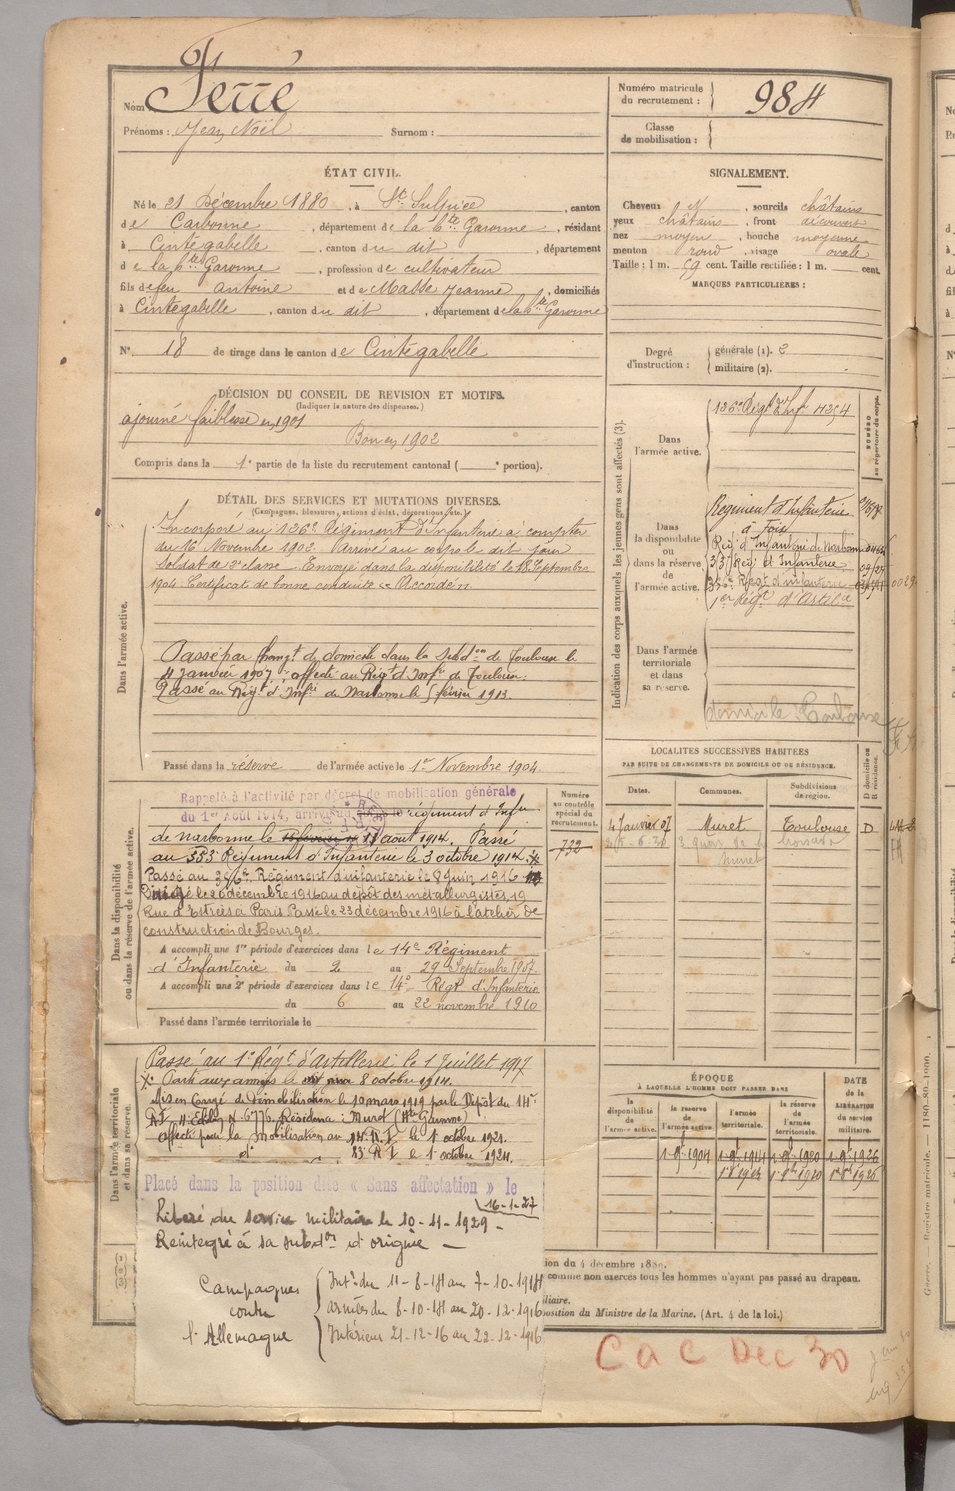 Nom : Ferré
Prénoms : Jean Noël Surnom :
Numéro matricule du recrutement : 984
Classe de mobilisation :
ÉTAT CIVIL.
Né le 21 Décembre 1880, à St. Sulpice, canton
de Carbonne, département de la Hte Garonne, résidant
à Cintegabelle, canton du dit, département
de la Hte Garonne, profession de cultivateur
fils de feu Antoine et de Masse Jeanne, domiciliés
à Cintegabelle, canton du dit, département de la Hte Garonne
N° 18 de tirage dans le canton de Cintegabelle
SIGNALEMENT.
Cheveux N, sourcils châtains
yeux châtains, front découvert
nez moyen, bouche moyenne
menton rond, visage ovale
Taille : 1 m. 59 cent. Taille rectifiée : 1 m. cent.
MARQUES PARTICULIÈRES :
Degré d'instruction : générale (1). 2
militaire (2).
DÉCISION DU CONSEIL DE REVISION ET MOTIFS.
(Indiquer la nature des dispenses.)
ajourné faiblesse en 1901
Bon en 1902
Compris dans la 1e partie de la liste du recrutement cantonal ( e portion).
DÉTAIL DES SERVICES ET MUTATIONS DIVERSES.
(Campagnes, blessures, actions d'éclat, décorations, etc.)
Dans l'armée active.
Incorporé au 126e Régiment d'Infanterie à compter
du 16 Novembre 1902. Arrivé au corps le dit jour
Soldat de 2e classe. Envoyé dans la disponibilité le 18 Septembre
1904. Certificat de bonne conduite "Accordé".
Passé par changt de domicile dans la Subdon de Toulouse le
4 Janvier 1907 : affecté au Régt d'Infie de Toulouse.
Passé au Régt d'Infie de Narbonne le 5 février 1913.
Passé dans la réserve de l'armée active le 1er Novembre 1904.
Indication des corps auxquels les jeunes gens sont affectés (3).
Dans l'armée active.
126e Régt d'Inf 4254
NUMÉRO au répertoire du corps.
Dans la disponibilité ou dans la réserve de l'armée active.
Régiment d'Infanterie
à Foix
Rég d'Infanterie de Narbonne
Rég d'Infanterie
Régt d'infanterie
1er Régt d'Artillie
Dans l'armée territoriale et dans sa réserve.
domicile : Toulouse
Dans la disponibilité ou dans la réserve de l'armée active.
Rappelé à l'activité par décret de mobilisation générale
du 1er Août 1914, arrivé au régiment d'Infie
de Narbonne le 11 août 1914. Passé
au 333e Régiment d'Infanterie le 3 octobre 1914.
Passé au Régiment d'infanterie le 8 juin 1916
Dirigé le 20 décembre 1916 au dépôt des métallurgistes, 19
Rue d'Estrées à Paris. Passé le 23 décembre 1916 à l'atelier de
construction de Bourges.
A accompli une 1re période d'exercices dans le 14e Régiment
d'Infanterie du 2 au 29 Septembre 1907.
A accompli une 2e période d'exercices dans le 14e Régt d'Infanterie
du 6 au 22 novembre 1910
Passé dans l'armée territoriale le
Numéro au contrôle spécial du recrutement.
732
LOCALITÉS SUCCESSIVES HABITÉES
PAR SUITE DE CHANGEMENTS DE DOMICILE OU DE RÉSIDENCE.
Dates. Communes. Subdivisions de région. D domicile ou R résidence.
4 Janvier 07 Muret Toulouse D
Muret
Dans l'armée territoriale et dans sa réserve.
Passé au 1er Régt d'Artillerie le 1 Juillet 1917
Parti aux armées le 8 octobre 1914.
Mis en Congé de Démobilisation le 10 mars 1919 par le Dépôt du 14e
Résidence : Muret (Hte Garonne)
affecté pour la mobilisation au 14e R.I. le 1 octobre 1921.
d° 83e R I le 1 octobre 1924.
Placé dans la position dite « Sans affectation » le
16-1-27
Libéré du service militaire le 10-11-1929 -
Réintégré à sa subdon d'origine —
Campagnes contre l'Allemagne
Intr du 11-8-14 au 7-10-1914
armées du 8-10-14 au 20-12-1916
Intérieur 21-12-16 au 22-12-1916
ÉPOQUE
À LAQUELLE L'HOMME DOIT PASSER DANS
la disponibilité de l'armée active. la réserve de l'armée active. l'armée territoriale. la réserve de l'armée territoriale. DATE de la LIBÉRATION du service militaire.
1 9bre 1904 1 9bre 1914 1 9bre 1920 1 9bre 1926
ion du 4 décembre 1889.
comme non exercés tous les hommes n'ayant pas passé au drapeau.
iliaire.
position du Ministre de la Marine. (Art. 4 de la loi.)
CaC Dec 30
Guerre. — Registre matricule. — 1180-80-1900.